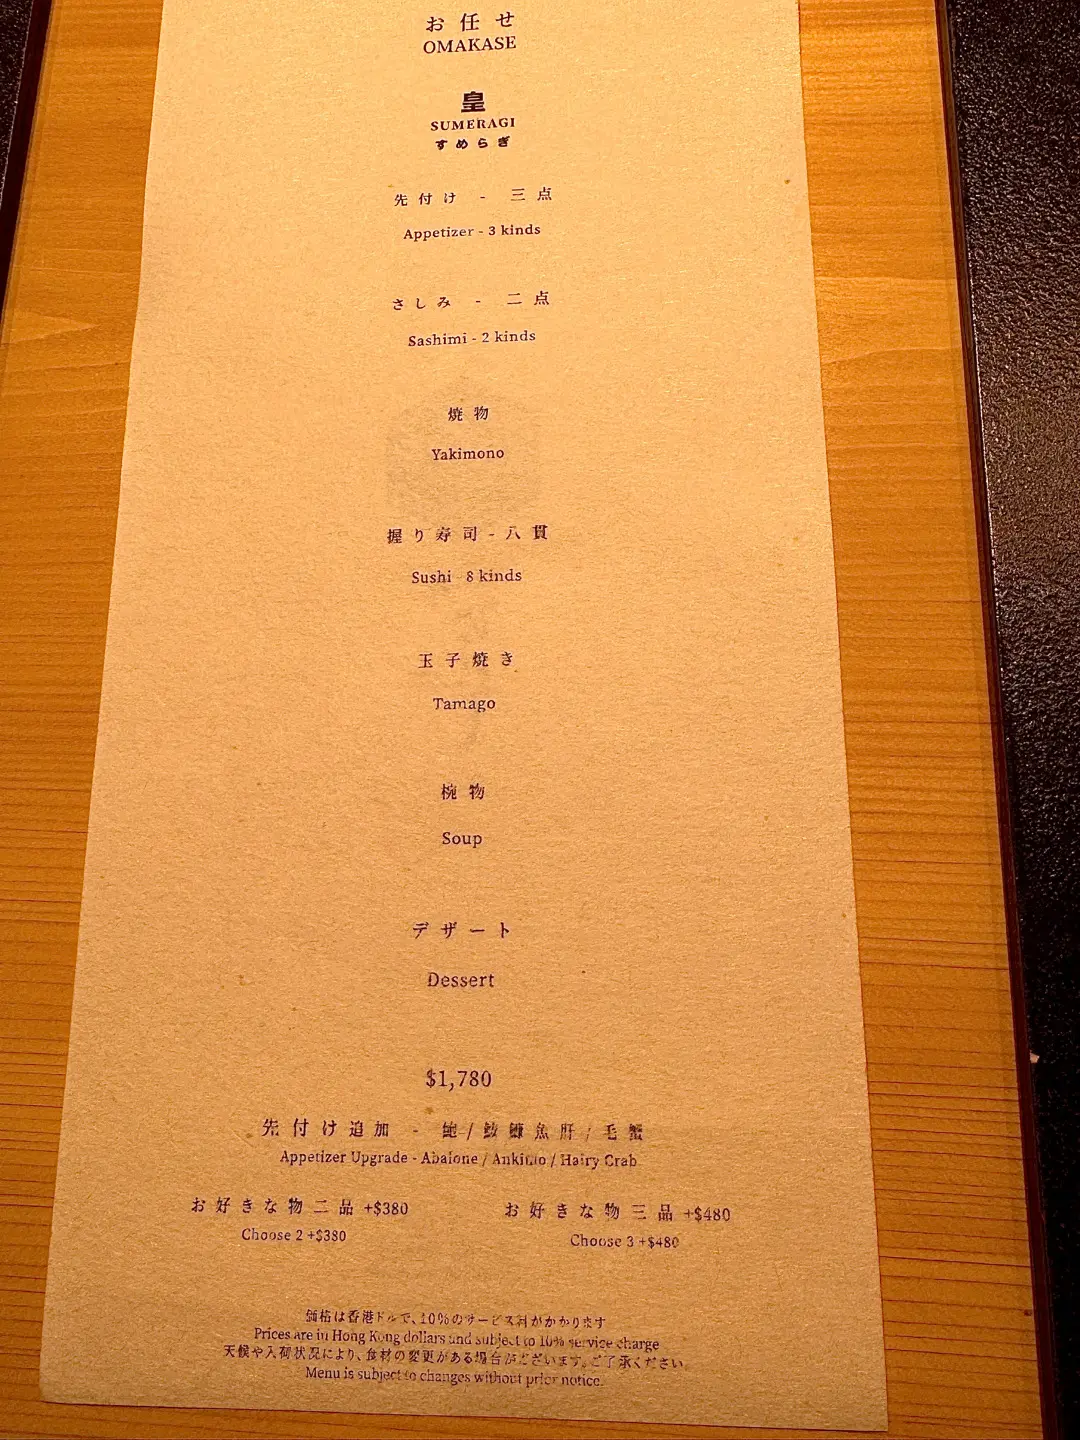 お任せ
OMAKASE
皇
SUMERAGI
すめらぎ
先付け - 三点
Appetizer - 3 kinds
さしみ - 二点
Sashimi - 2 kinds
焼物
Yakimono
握り寿司 - 八貫
Sushi - 8 kinds
玉子焼き
Tamago
椀物
Soup
デザート
Dessert
$1,780
先付け追加 - 鮑 / 鮟鱇魚肝 / 毛蟹
Appetizer Upgrade - Abalone / Ankimo / Hairy Crab
お好きな物二品 +$380
Choose 2 +$380
お好きな物三品 +$480
Choose 3 +$480
価格は香港ドルで、10%のサービス料がかかります
Prices are in Hong Kong dollars and subject to 10% service charge
天候や入荷状況により、食材の変更がある場合がございます。ご了承ください。
Menu is subject to changes without prior notice.